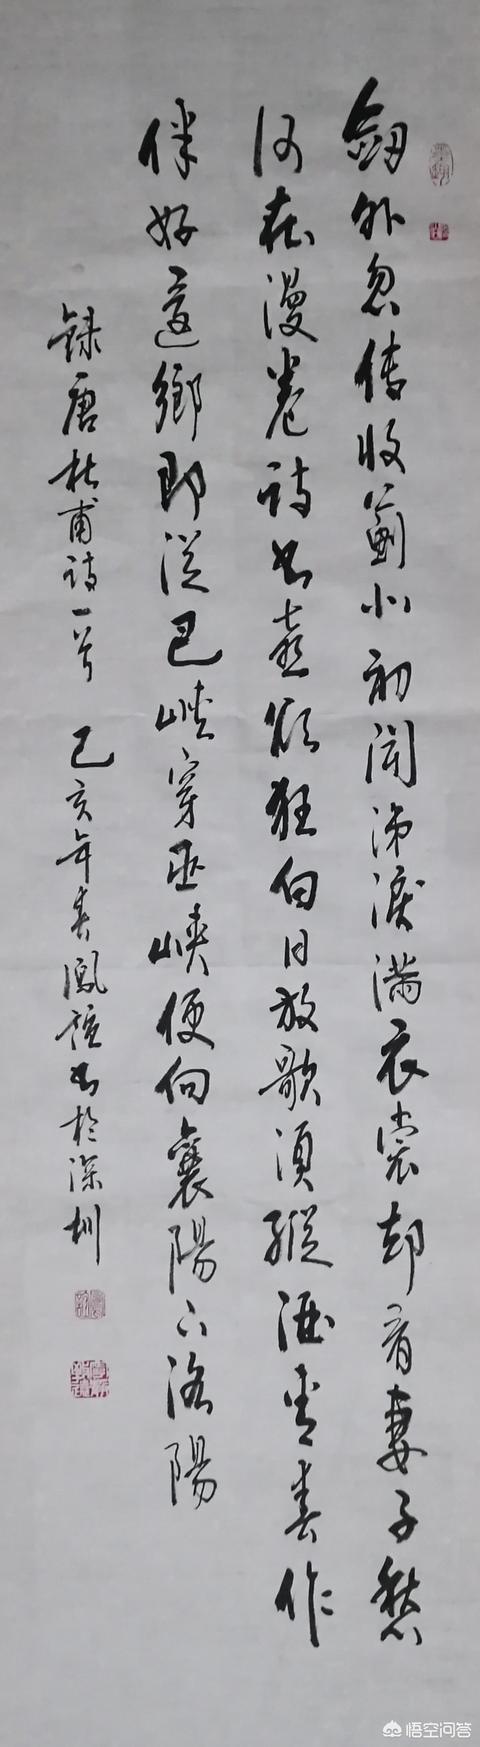 劔外忽傳收薊北初聞涕淚滿衣裳却看妻子愁
何在漫卷詩書喜欲狂白日放歌須縱酒青春作
伴好還鄉即從巴峽穿巫峽便向襄陽下洛陽
録唐杜甫詩一首 己亥年春鳳書於深圳
悟空问答